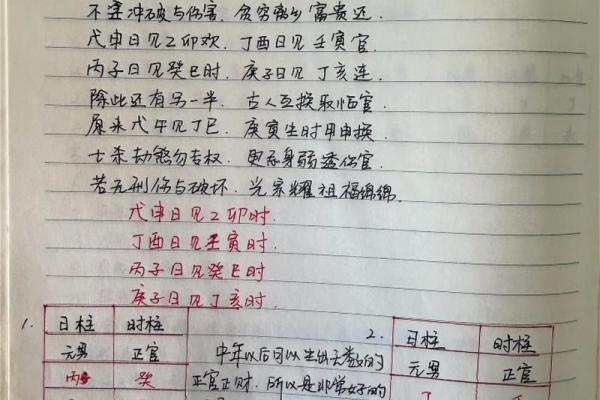 不害冲破与伤害.贫穷离乡富贵还.
戊申日见乙卯欢.丁酉日见壬寅官.
丙子日见癸巳时.庚子日见丁亥连.
除此还有另一半.古人互换取怕官.
原来戊午见丁巳.庚寅生时甲申换.
七杀劫煞勿专权.更忌身弱透伤官.
若无刑伤与破坏.光宗耀祖福绵绵.
戊申日见乙卯时.
丁酉日见壬寅时.
丙子日见癸巳时
庚子日见丁亥时.
1.
日柱 时柱
元男 正官
丙 癸
中年以后可以生出去数的
正官正财.所以是非常好的
2.
日柱 时柱
元男 正官
丁